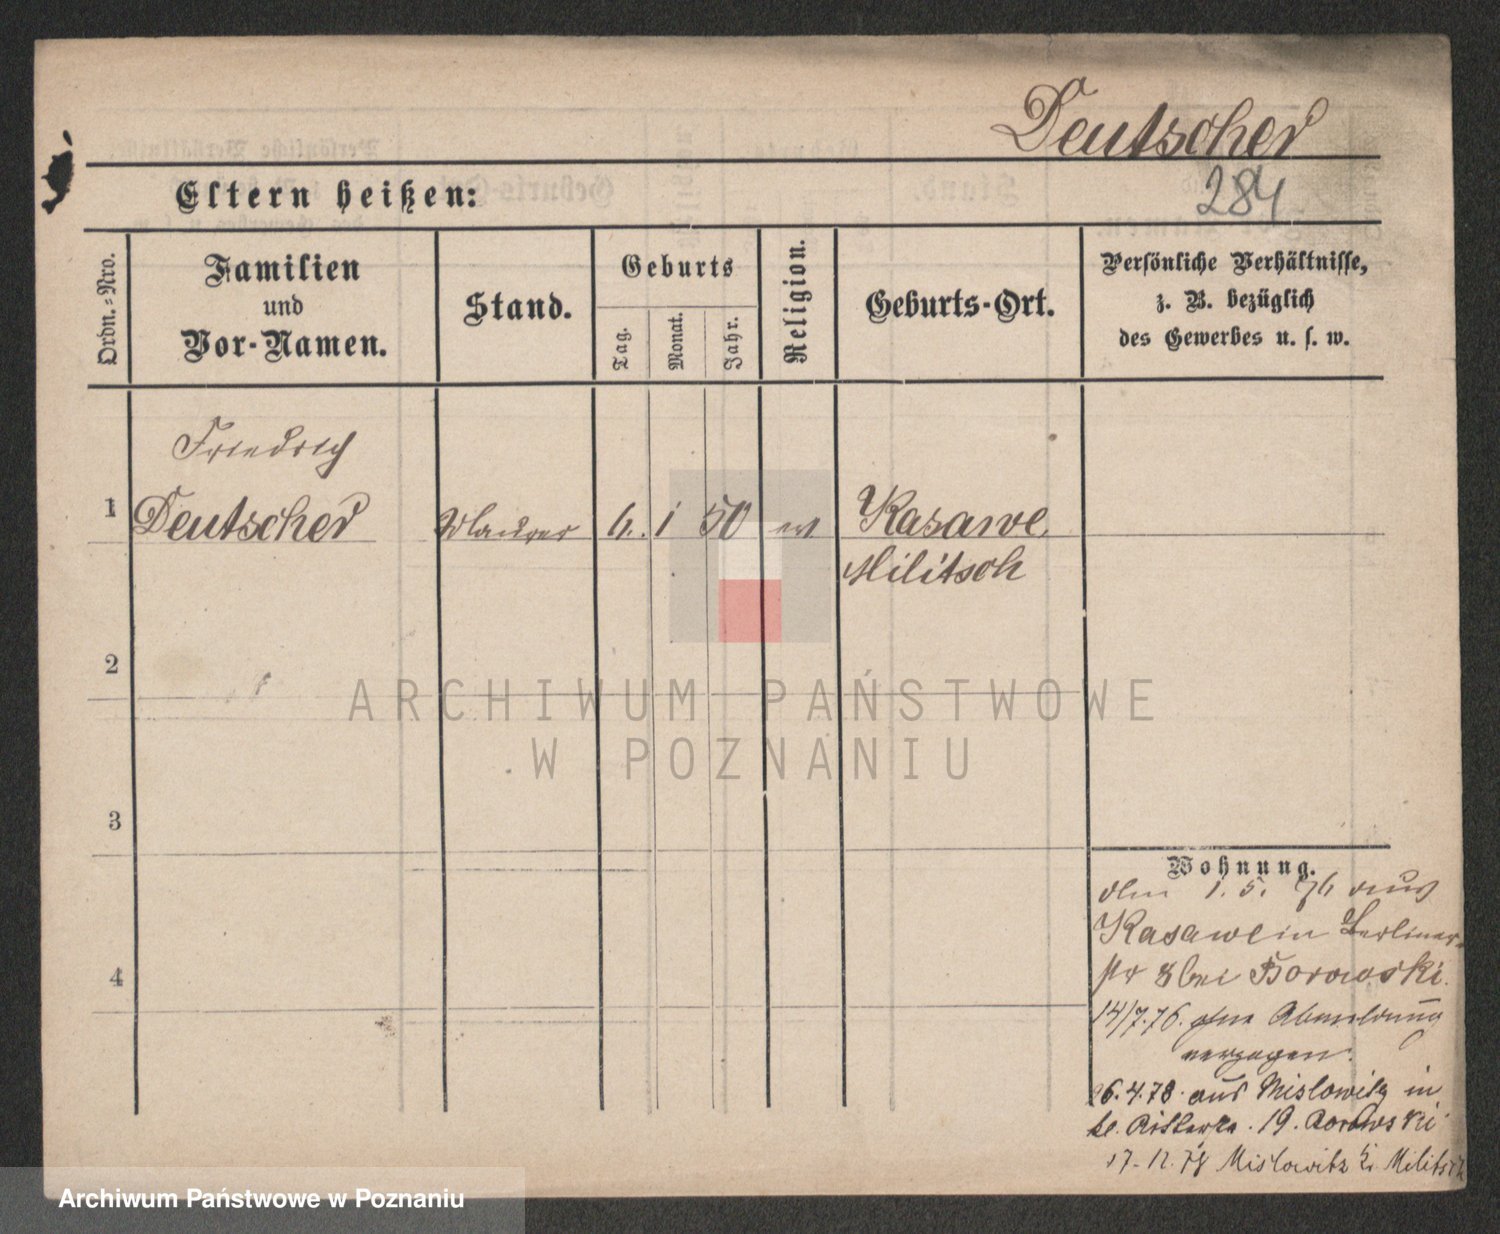 Deutscher
284
Eltern heißen:
Ordn.=Nro.
Familien
und
Vor-Namen.
Stand.
Geburts
Tag.
Monat.
Jahr.
Religion.
Geburts-Ort.
Persönliche Verhältnisse,
z. B. bezüglich
des Gewerbes u. s. w.
Friedrich
1 Deutscher Maurer 6. 1 50 ev Kasawe
Militsch
2
3
4
ARCHIWUM PAŃSTWOWE
W POZNANIU
Wohnung.
den 1. 5. 76 aus
Kasawe in Berliner
str 8 bei Borowski.
14/7.76. ohne Abmeldung
verzogen.
26.4.78. aus Mislowitz in
kl. 19. Borowski
17.12.78 Mislowitz Kr. Militsch
Archiwum Państwowe w Poznaniu